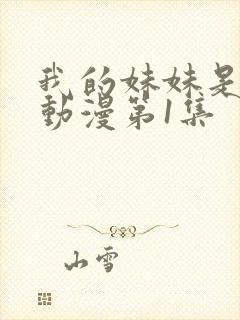 我的妹妹是
動漫第1集
山雪